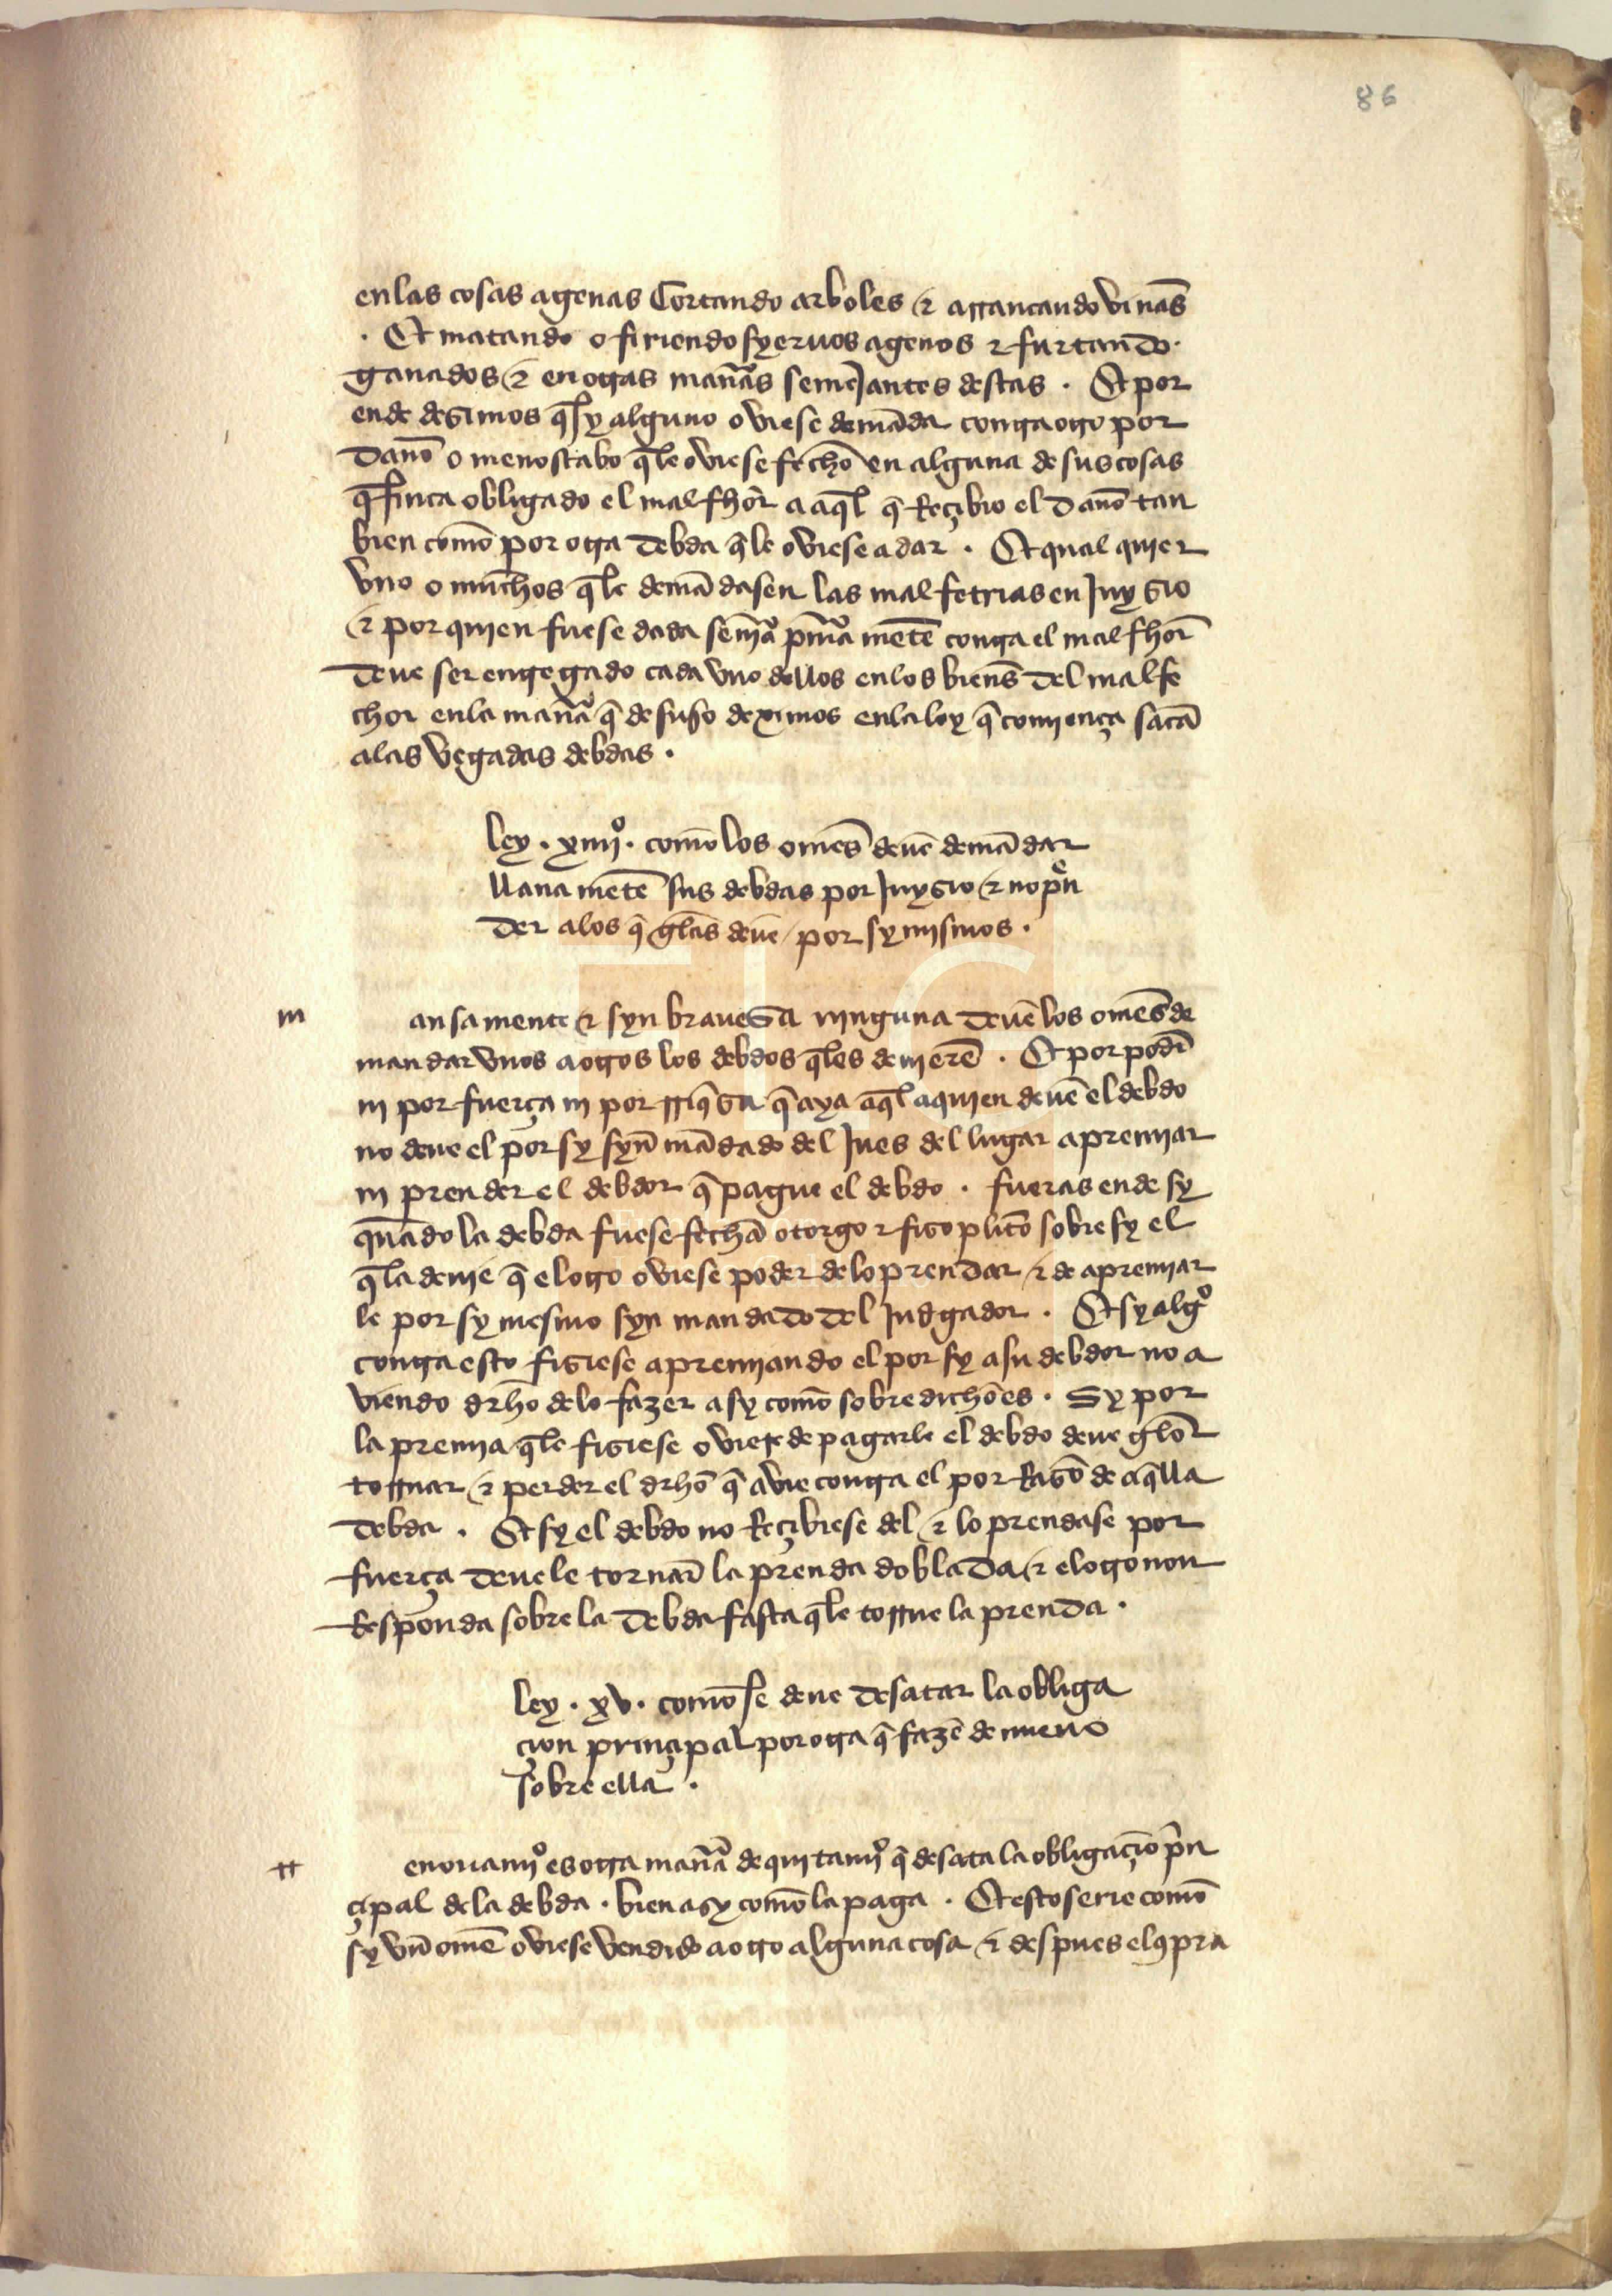 86
en las cosas agenas Cortando arboles & arrancando viñas
. Et matando o firiendo syeruos agenos & furtando
ganados & en otras man̄as semejantes destas . Et por
ende desimos q̄ sy alguno oviese demāda contra otro por
Dan̄o o menoscabo q̄le oviese fecho en alguna de sus cosas
q̄ finca obligado el malfhor a aq̄l q̄ Reçibio el Dan̄o tan
bien como por otra Debda q̄le oviese a dar . Et qual quier
vno o muchos q̄le demādasen las malfetrias en Juysio
& por quien fuese dada senīa pmā mēte contra el malfhor
Deue ser entregado cada vno dellos en los biens Del malfe
chor en la man̄a q̄ de suso deximos en la ley q̄ comiença sacā
a las vegadas debdas .
Ley . xiiijº . como los omēs deuē demādar
llana mēte sus debdas por Juysio & no pēn
Der a los q̄ gelas deuē por sy mismos .
m ansa mente & syn brauesa ninguna Deuē los omēs de
mandar vnos a otros los debdos q̄les deuierē . Et por podī
ni por fuerça ni por rriq̄sa q̄ aya aq̄l a quien deuē el debdo
no deue el por sy syn̄ mādado del Jues del lugar apremiar
ni prender el debdor q̄ pague el debdo . fueras ende sy
quādo la debda fuese fecha otorgo & fiso plito sobre sy el
q̄ la deuie q̄ el otro oviese poder de lo prendar & de apremiar
le por sy mesmo syn mandado Del Judgador . Et sy algº
contra esto fisiese apremiando el por sy a su debdor no a
viendo drho de lo fazer asy como sobre dicho es . Sy por
la premia q̄le fisiese oviese de pagarle el debdo deue gelo
torrnar & perder el drho q̄ avie contra el por Rasō de aq̄lla
Debda . Et sy el debdo no Reçibiese del & lo prendase por
fuerça Deuele tornar la prenda doblada & el otro non
Responda sobre la Debda fasta q̄le torrne la prenda .
Ley . xv . como se deue Desatar la obliga
çion prinçipal por otra q̄ fazē de nueuo
sobre ella .
rr enouamiº es otra man̄a de quitamiº q̄ desata la obligaçiō prin
çipal de la debda . bien asy como la paga . Et esto serie como
sy vn̄ omē oviese vendido a otro alguna cosa & despues el ꝯpra